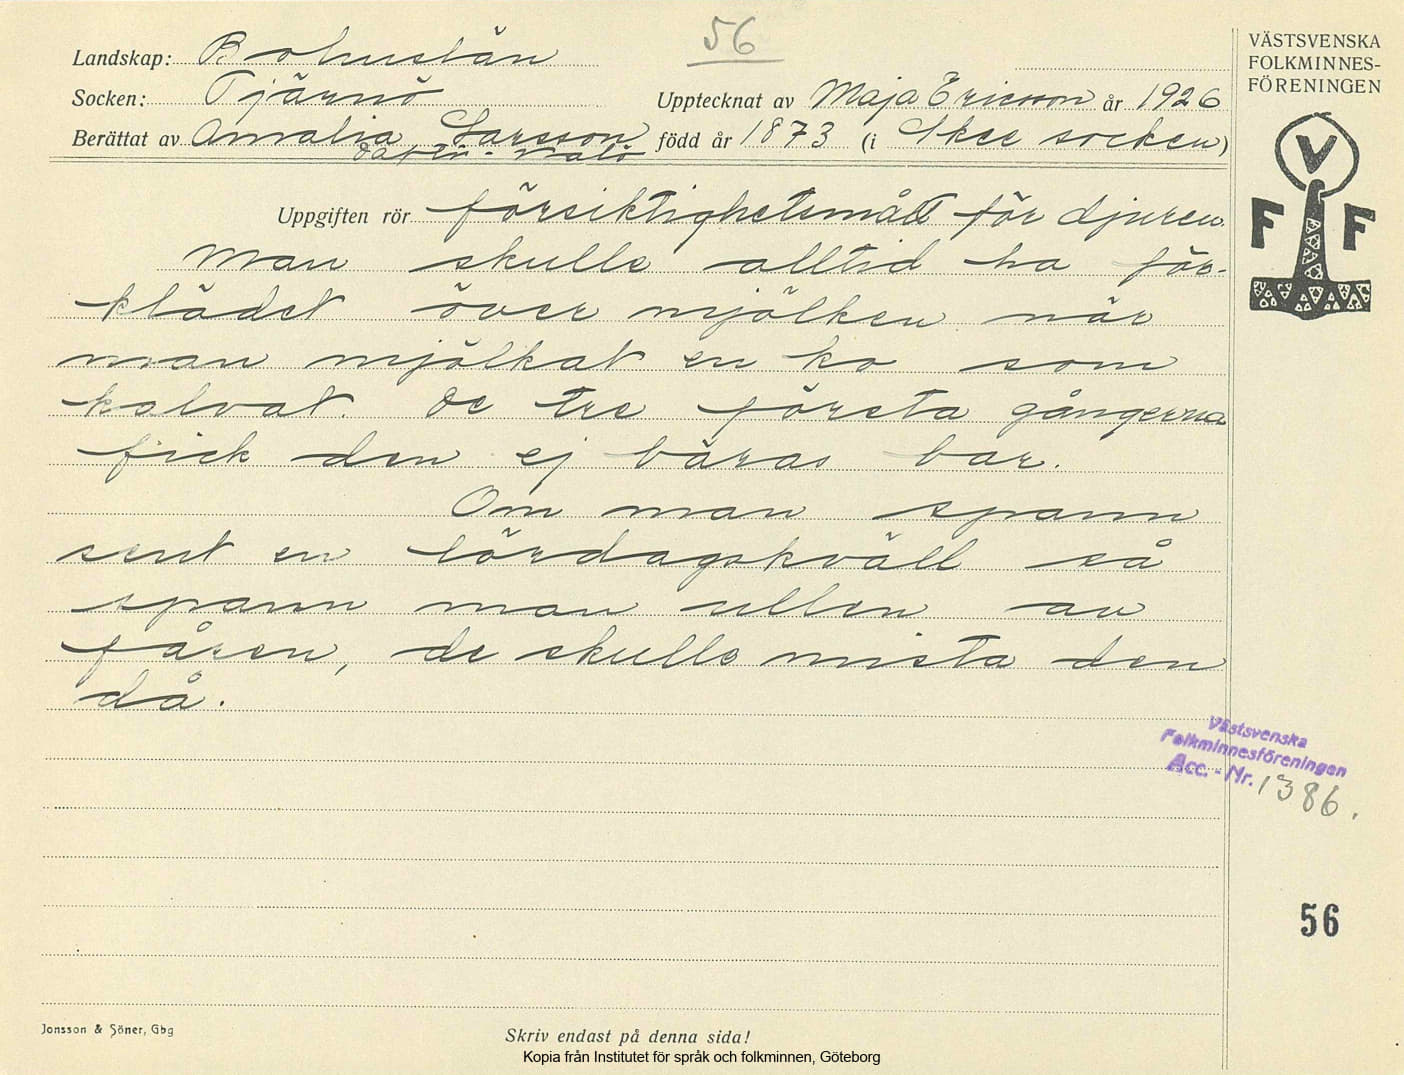 56
VÄSTSVENSKA
FOLKMINNES-
FÖRENINGEN
Landskap: Bohuslän
Socken: Tjärnö
Upptecknat av Maja Ericsson år 1926
Berättat av Amalia Larsson född år 1873 (i Skee socken)
V
F F
Uppgiften rör försiktighetsmått för djuren.
Man skulle alltid ha för-
klädet över mjölken när
man mjölkat en ko som
kalvat. De tre första gångerna
fick den ej bäras bar.
Om man spann
sent en lördagskväll så
spann man ullen av
fåren, de skulle mista den
då.
Västsvenska
Folkminnesföreningen
Acc. - Nr. 1386.
56
Jonsson & Söner, Gbg
Skriv endast på denna sida!
Kopia från Institutet för språk och folkminnen, Göteborg